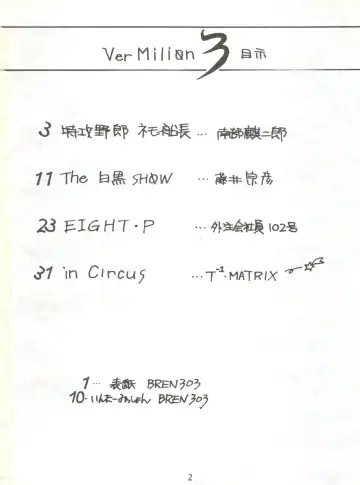 Ver Milion 3 目次
3 特攻野郎 ネモ船長 … 南部麒二郎
11 The 白黒 SHOW … 藤井宗彦
23 EIGHT・P … 外注会社員 102号
31 in Circus … T⁻¹・MATRIX
1 … 表紙 BREN303
10 … いんたーみっしょん BREN303
2